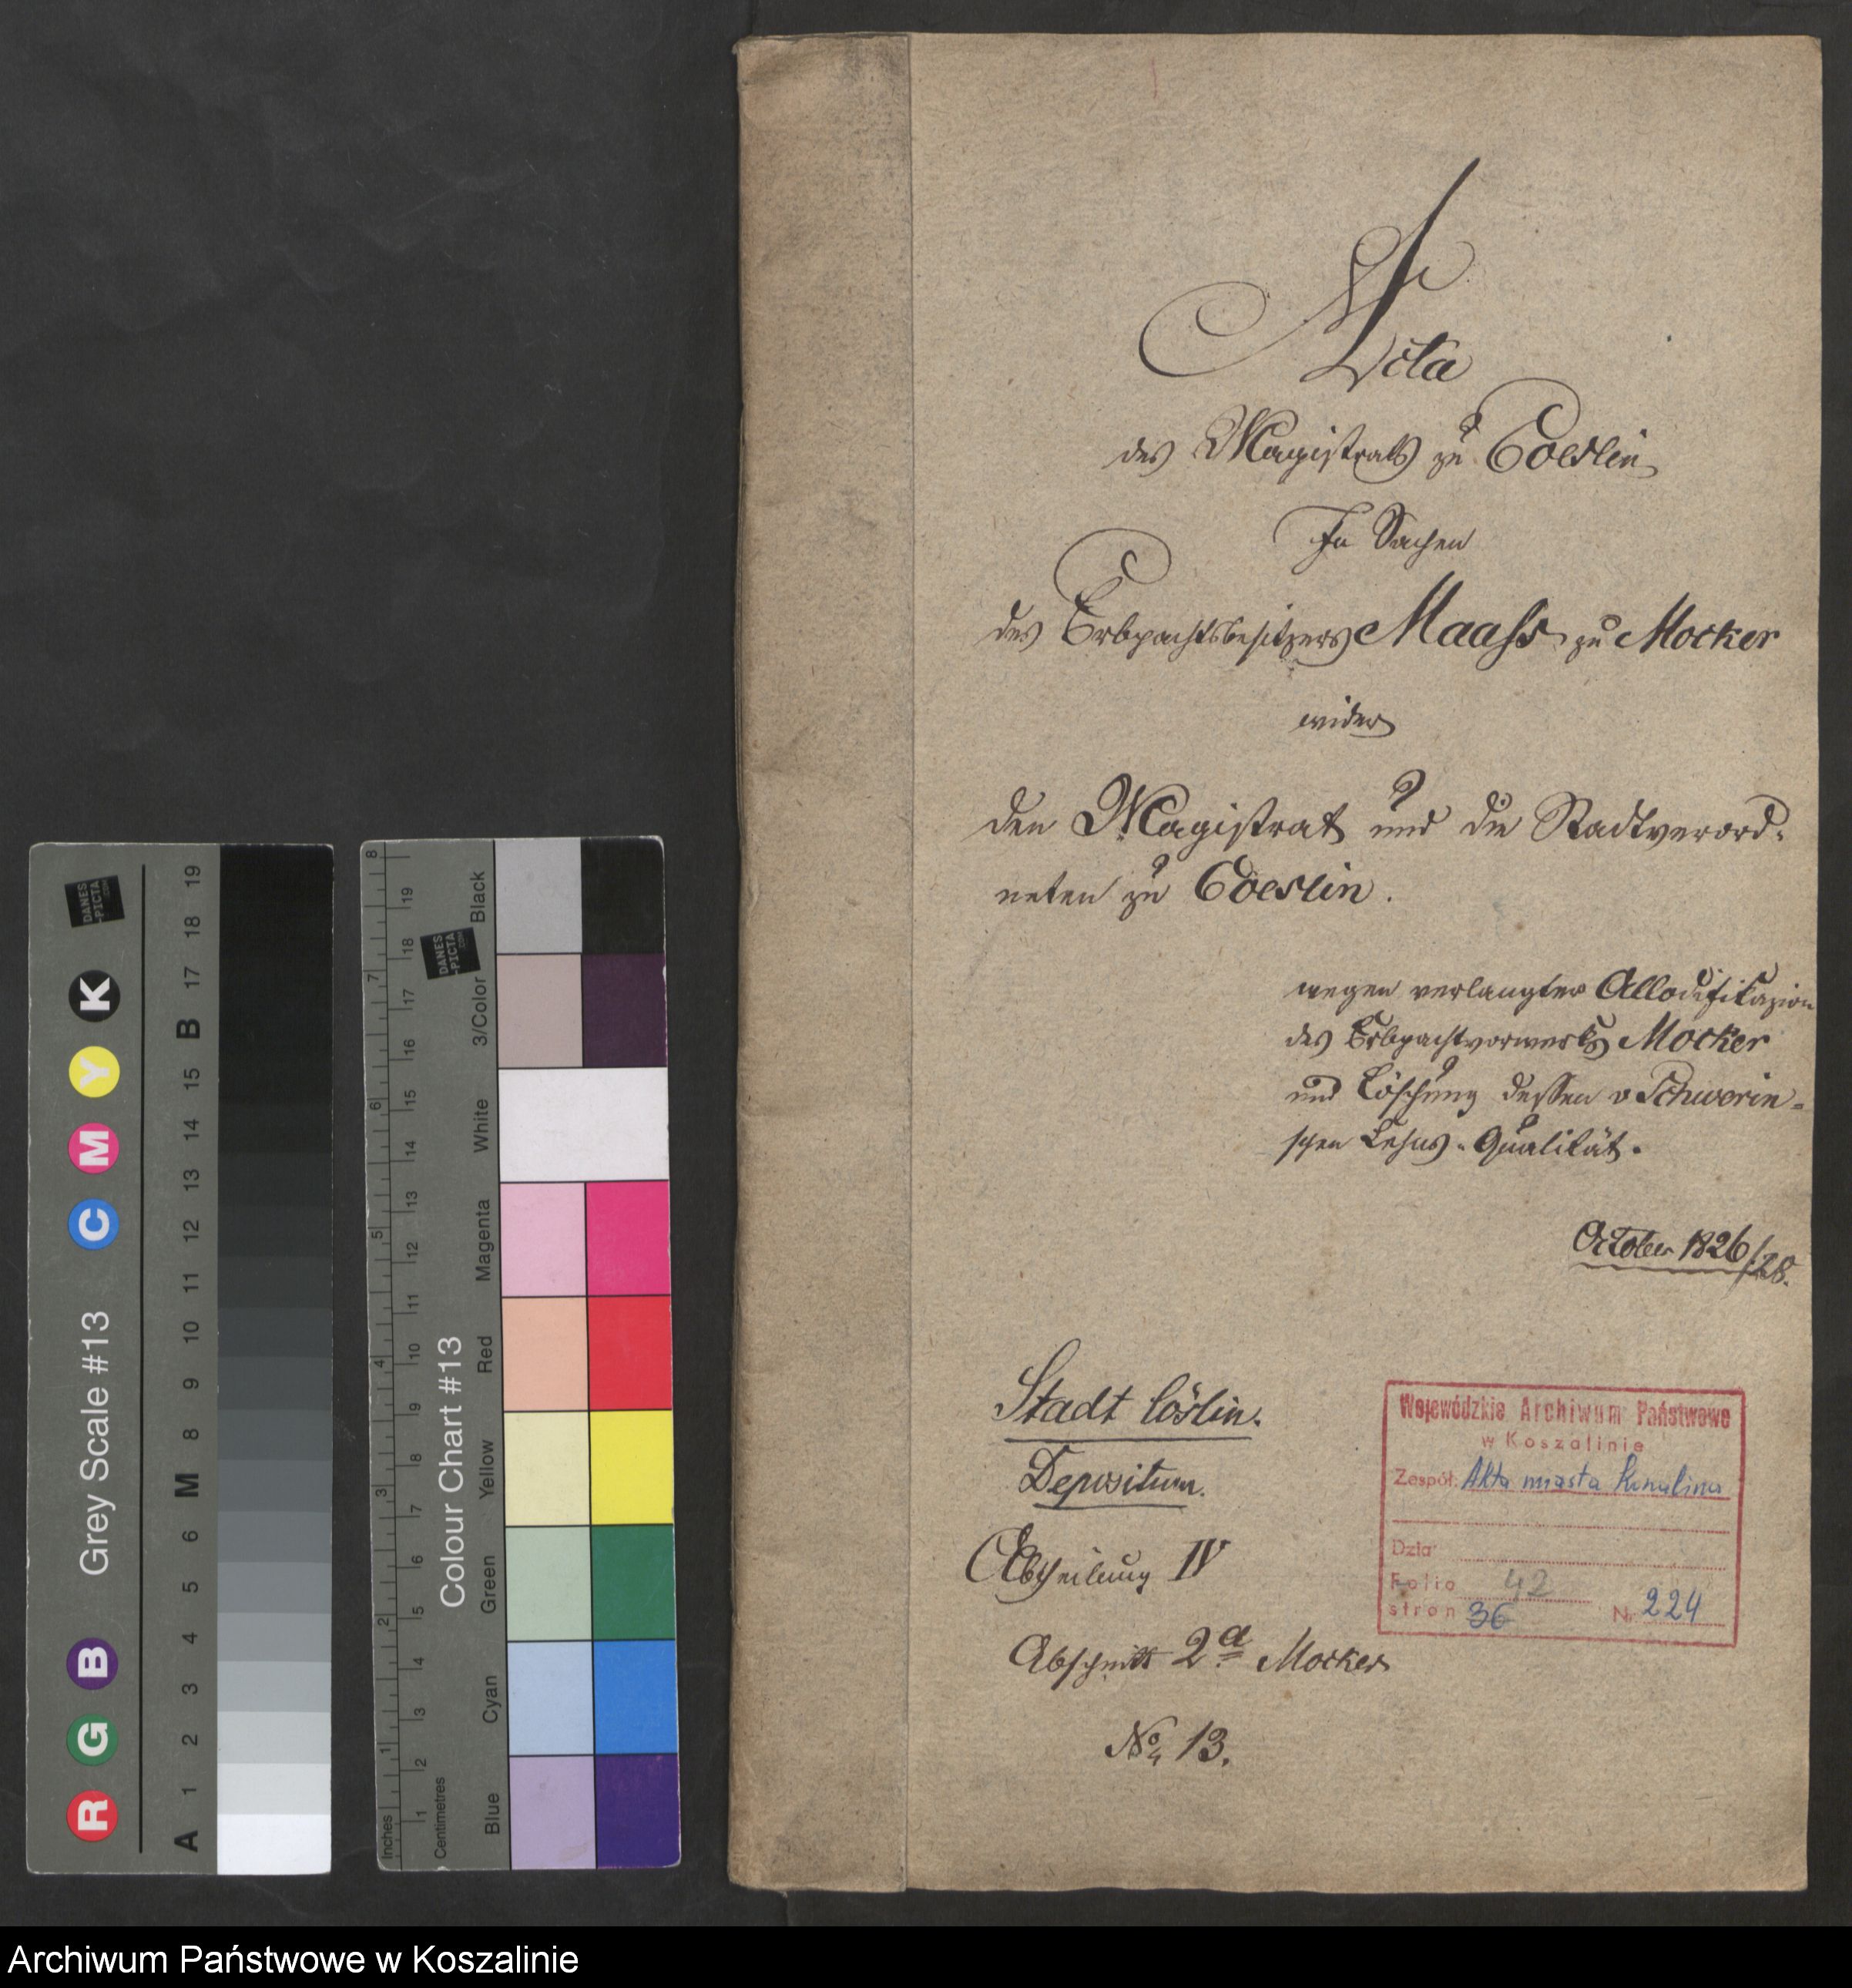 Acta
des Magistrats zu Coeslin
In Sachen
des Erbpachtsbesitzers Maass zu Mocker
wider
den Magistrat und die Stadtverord-
neten zu Coeslin.
wegen verlangter Allodifikazion
des Erbpachtvorwerks Mocker
und Löschung dessen v Schwerin-
schen Lehns-Qualität.
October 1826/28.
Stadt Cöslin.
Depositum.
Abtheilung IV
Abschnitt 2 a Mocker
No 13.
Wojewódzkie Archiwum Państwowe
w Koszalinie
Zespół: Akta miasta Koszalina
Dział
Folio 42
stron 36 Nr 224
Grey Scale #13
R G B C M Y K
DANES
-PICTA
.COM
A 1 2 3 4 5 6 M 8 9 10 11 12 13 14 15 B 17 18 19
Colour Chart #13
DANES
-PICTA
.COM
Blue Cyan Green Yellow Red Magenta White 3/Color Black
Inches 1 2 3 4 5 6 7 8
Centimetres 1 2 3 4 5 6 7 8 9 10 11 12 13 14 15 16 17 18 19
Archiwum Państwowe w Koszalinie